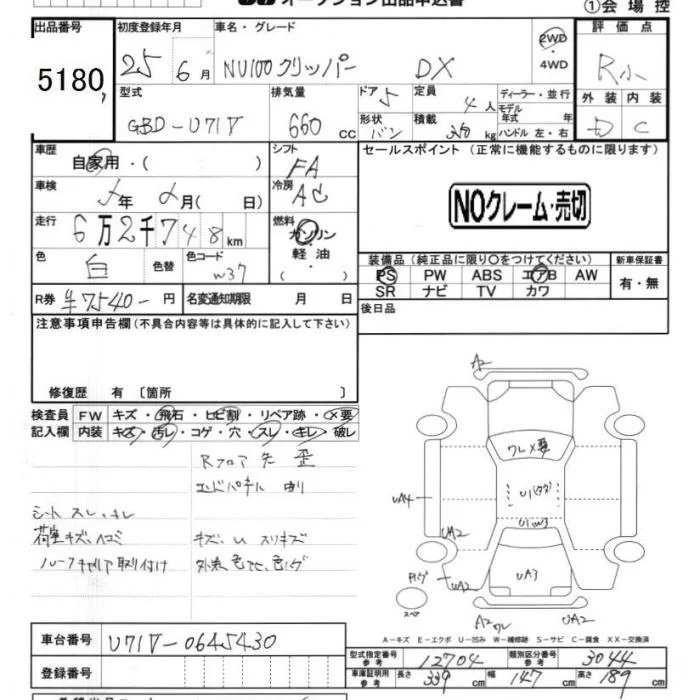 オークション出品申込書
①会場控
出品番号 初度登録年月 車名・グレード 評価点
5180 25年6月 NV100クリッパー DX 2WD・4WD R
外装 内装
D C
型式 排気量 ドア 定員 ディーラー・並行
GBD-U71V 660cc 5 4人 モデル年式 年
形状 積載 ハンドル 左・右
バン 350kg
車歴 シフト セールスポイント(正常に機能するものに限ります)
自家用・( ) FA
車検 冷房
年 2月(日) AC
NOクレーム・売切
走行 燃料
6万2千748km ガソリン・軽油・( )
色 色替 色コード
白 W37
装備品(純正品に限り○をつけてください) 新車保証書
PS PW ABS エアB AW 有・無
SR ナビ TV カワ
R券 ¥7540-円 名変通知期限 月 日
後日品
注意事項申告欄(不具合内容等は具体的に記入して下さい)
修復歴 有〔箇所 〕
検査員 FW キズ・飛石・ヒビ割・リペア跡・×要
記入欄 内装 キズ・汚レ・コゲ・穴・スレ・キレ・破レ
Rフロア先 歪
エンドパネル 曲り
シート スレ、キレ
荷室キズ、ヘコミ キズ、U スリキズ
ルーフキャリア取り付け
A2
ワレ×要
UA4
U1(タタ)
UA2
U1、W3
UA2
UA3
スペア
A2ワレ
UA2
A-キズ E-エクボ U-凹み W-補修跡 S-サビ C-腐食 XX-交換済
車台番号 U71V-0645430
型式指定番号 参考 12704 類別区分番号 参考 3044
登録番号
車庫証明用 参考 長さ 339cm 幅 147cm 高さ 189cm